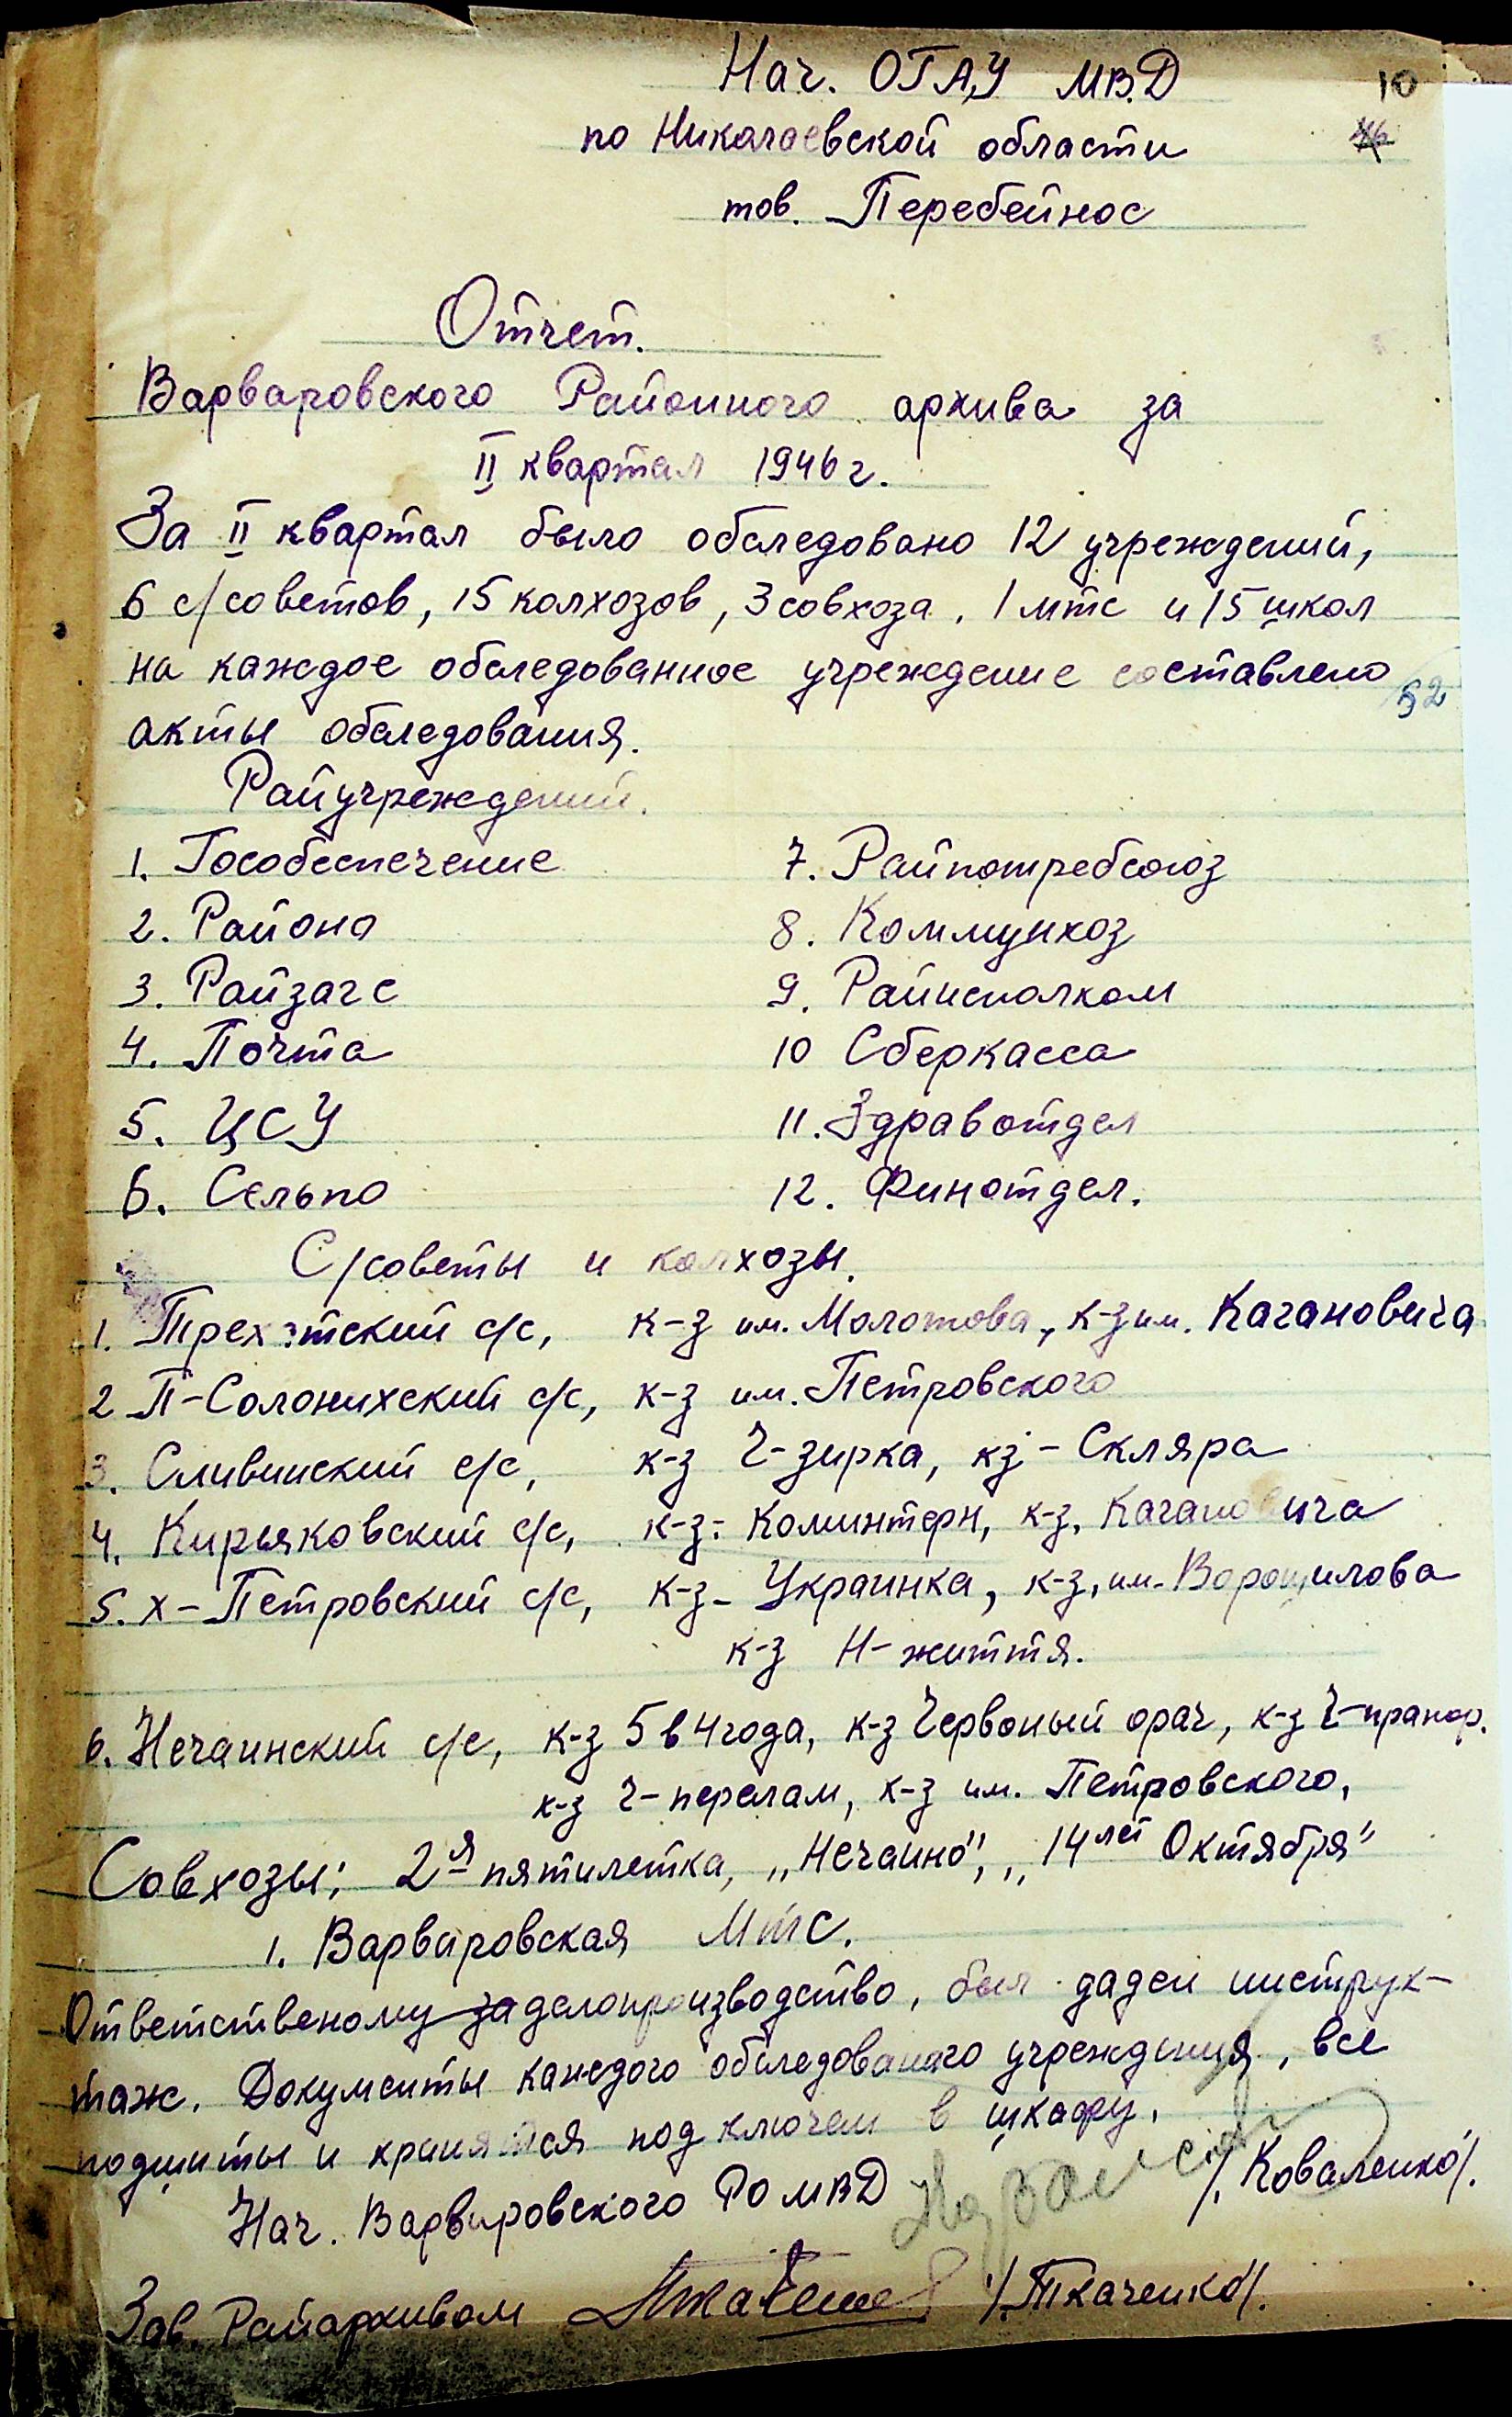 10
Нач. ОГАУ МВД
по Николаевской области
тов. Перебейнос
Отчет.
Варваровского Районного архива за
II квартал 1946 г.
За II квартал было обследовано 12 учреждений,
6 с/советов, 15 колхозов, 3 совхоза, 1 мтс и 15 школ
на каждое обследованное учреждение составлено
52
акты обследования.
Райучреждений.
1. Гособеспечение
2. Районо
3. Райзагс
4. Почта
5. ЦСУ
6. Сельпо
7. Райпотребсоюз
8. Коммунхоз
9. Райисполком
10 Сберкасса
11. Здравотдел
12. Финотдел.
С/советы и колхозы.
1. Трехатский с/с, к-з им. Молотова, к-з им. Кагановича
2 П-Солонихский с/с, к-з им. Петровского
3. Сливинский с/с, к-з Ч-зирка, кз - Скляра
4. Кирьяковский с/с, к-з: Коминтерн, к-з. Кагановича
5. Х-Петровский с/с, к-з - Украинка, к-з, им. Ворошилова
к-з Н-життя.
6. Нечаинский с/с, к-з 5 в 4 года, к-з Червоный орач, к-з Ч-прапор.
к-з Ч-перелам, к-з им. Петровского,
Совхозы: 2я пятилетка, „Нечаино", „14 лет Октября"
1. Варваровская Мтс.
Ответственому за делопроизводство, был даден инструк-
таж. Документы каждого обследованого учреждения, все
подшиты и хранятся под ключем в шкафу.
Нач. Варваровского РО МВД /. Коваленко/.
Зав. Райархивом /.Ткаченко/.